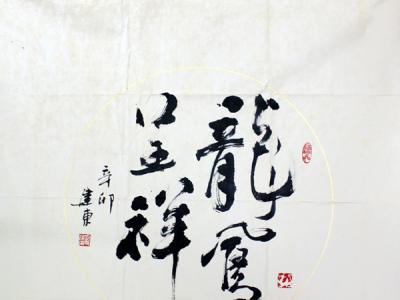 龍鳳
呈祥
辛卯
建東